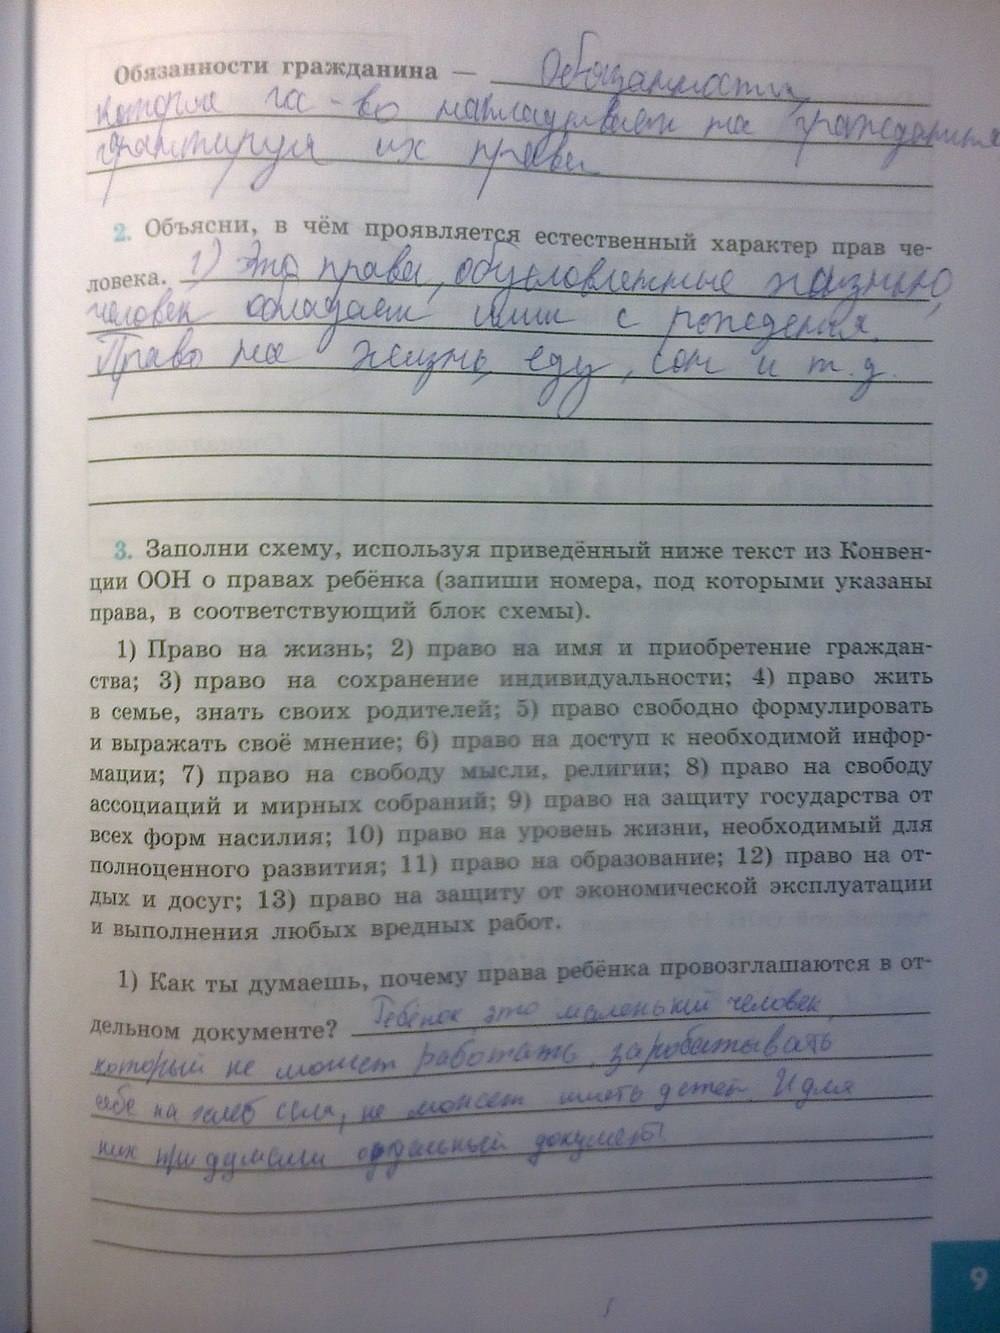 Обязанности гражданина — Обязанности,
которые гос-во накладывает на гражданина
гарантируя их права
2. Объясни, в чём проявляется естественный характер прав че-
ловека. 1) Это права, обусловленные жизнью,
человек обладает ими с рождения.
Право на жизнь, еду, сон и т.д.
3. Заполни схему, используя приведённый ниже текст из Конвен-
ции ООН о правах ребёнка (запиши номера, под которыми указаны
права, в соответствующий блок схемы).
1) Право на жизнь; 2) право на имя и приобретение граждан-
ства; 3) право на сохранение индивидуальности; 4) право жить
в семье, знать своих родителей; 5) право свободно формулировать
и выражать своё мнение; 6) право на доступ к необходимой инфор-
мации; 7) право на свободу мысли, религии; 8) право на свободу
ассоциаций и мирных собраний; 9) право на защиту государства от
всех форм насилия; 10) право на уровень жизни, необходимый для
полноценного развития; 11) право на образование; 12) право на от-
дых и досуг; 13) право на защиту от экономической эксплуатации
и выполнения любых вредных работ.
1) Как ты думаешь, почему права ребёнка провозглашаются в от-
дельном документе? Ребёнок это маленький человек,
который не может работать, зарабатывать
себе на хлеб сам, не может иметь детей. И для
них придумали отдельный документ.
9